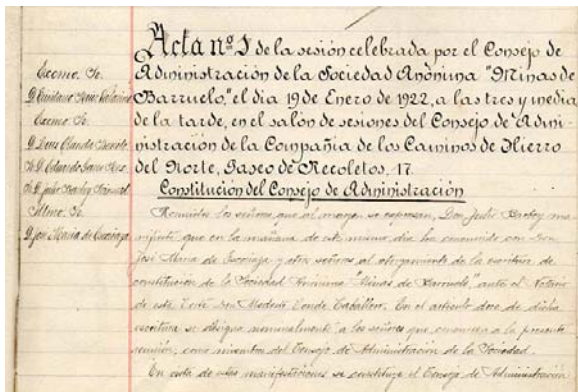 Acta nº 1 de la sesión celebrada por el Consejo de
Administración de la Sociedad Anónima "Minas de
Barruelo," el dia 19 de Enero de 1922, a las tres y media
de la tarde, en el salón de sesiones del Consejo de Admi-
nistración de la Compañia de los Caminos de Hierro
del Norte, Paseo de Recoletos, 17.
Constitución del Consejo de Administración
Excmo. Sr.
Excmo. Sr.
Iltmo. Sr.
D. José Maria de
Reunidos los señores que al margen se expresan, Don Justo ma-
nifiesta que en la mañana de este mismo dia ha concurrido con Don
José Maria de y otros señores al otorgamiento de la escritura de
constitución de la Sociedad Anónima "Minas de Barruelo", ante el Notario
de esta Corte Don Modesto Conde Caballero. En el articulo doce de dicha
escritura se designa nominalmente a los señores que concurren a la presente
reunión, como miembros del Consejo de Administración de la Sociedad.
En vista de estas manifestaciones se constituye el Consejo de Administración